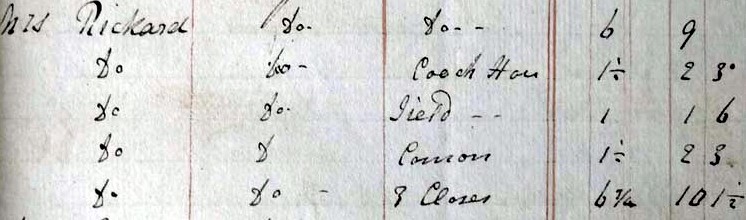 Mrs Rickard Do Do - - 6 9
Do Do - Coach Hou 1½ 2 3
Do Do Field - - 1 1 6
Do D Comon 1½ 2 3
Do Do - 3 Closes 6¾ 10 1½